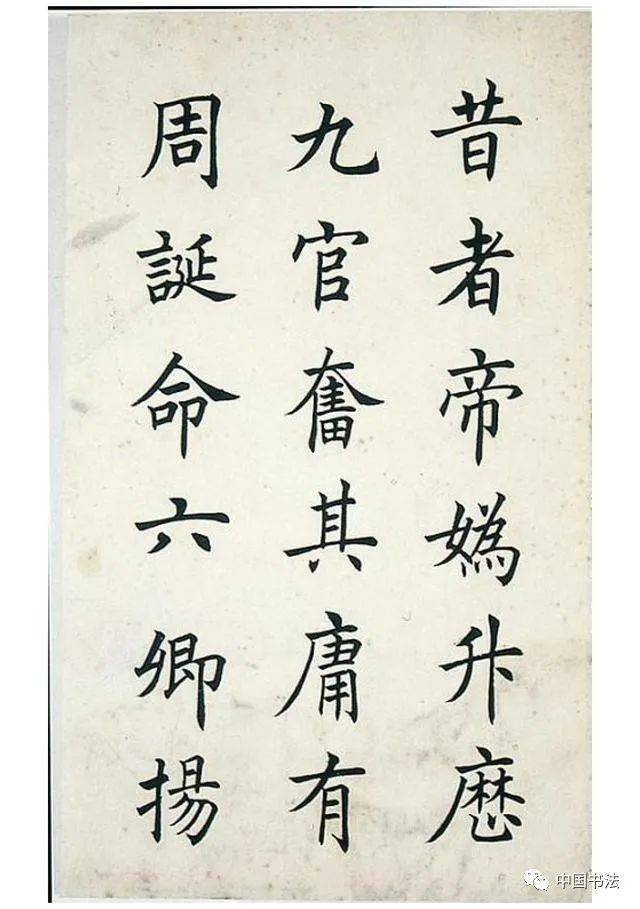 昔者帝媯升歴
九官奮其庸有
周誕命六卿揚
中国书法